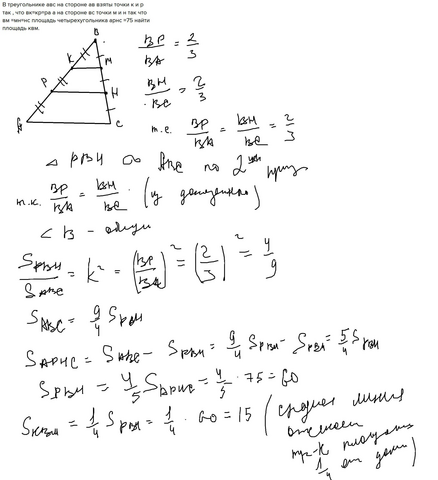 В треугольнике авс на стороне ав взяты точки к и р
так , что вк=кр=ра а на стороне вс точки м и н так что
вм =мн=нс площадь четырехугольника арнс =75 найти
площадь квм.
B
K M
P H
A C
BP/BA = 2/3
BH/BC = 2/3
т.е. BP/BA = BH/BC = 2/3
△ PBH ∞ ABC по 2
т.к. BP/BA = BH/BC
∠ B - общий
S_PBH/S_ABC = k² = (BP/BA)² = (2/3)² = 4/9
S_ABC = 9/4 S_PBH
S_APHC = S_ABC - S_PBH = 9/4 S_PBH - S_PBH = 5/4 S_PBH
S_PBH = 4/5 S_APHC = 4/5 · 75 = 60
S_KBM = 1/4 S_PBH = 1/4 · 60 = 15 (средняя линия
отсекает
тр-к площадь
1/4 от